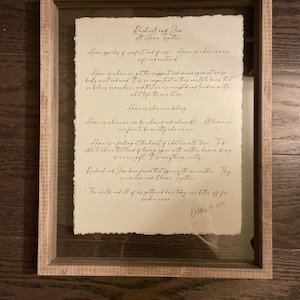 Rachael and Jim
At Home Together
Home speaks of comfort and of ease. Home is where we are
safe and nurtured.
Home is where we get the support and encouragement we so
badly want and need. It is so important in this world to know that
we belong somewhere and that we are accepted and loved no matter
what life throws at us.
Home is where we belong.
Home is where we can be relaxed and vulnerable. At home, we
are free to be exactly who we are.
Home is a feeling at the heart of what we all love. To be
able to share that kind of loving space with another human being
is a rare gift. It is everything, really.
Rachael and Jim have found that space with one another. They
are in love and at home, together.
The world and all of us gathered here today are better off for
such a union.
October